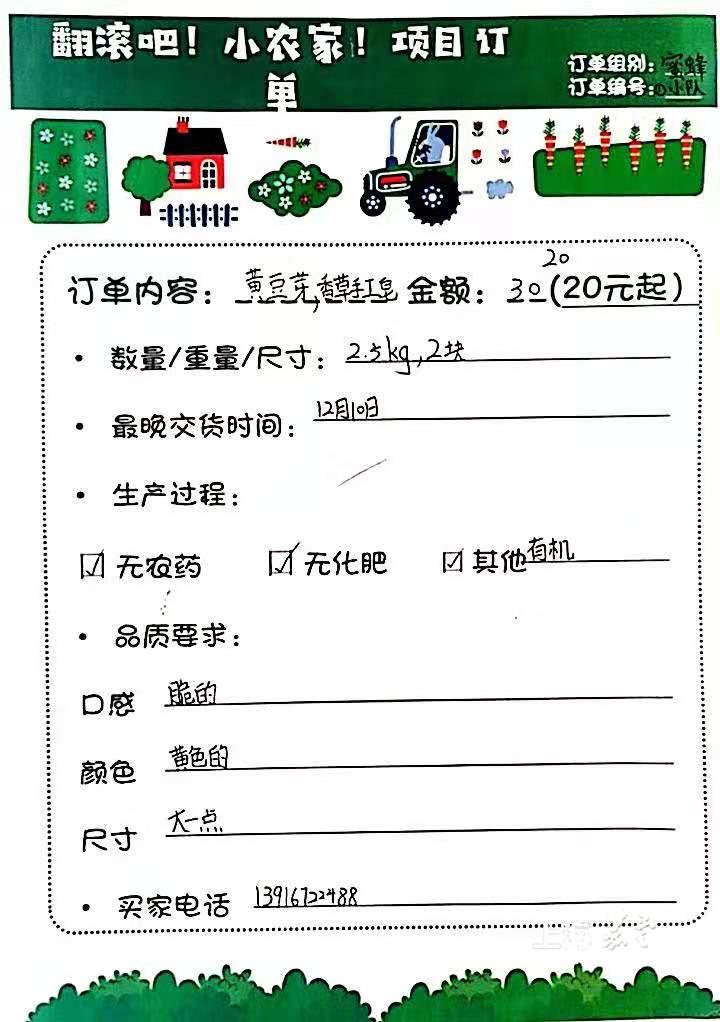 翻滚吧！小农家！项目订
单
订单组别：蜜蜂
订单编号：小队
20
订单内容：黄豆芽，香草手工皂 金额：30（20元起）
· 数量/重量/尺寸：2.5kg，2块
· 最晚交货时间：12月10日
· 生产过程：
☑ 无农药 ☑ 无化肥 ☑ 其他有机
· 品质要求：
口感 脆的
颜色 黄色的
尺寸 大一点
· 买家电话 13916722488
上海